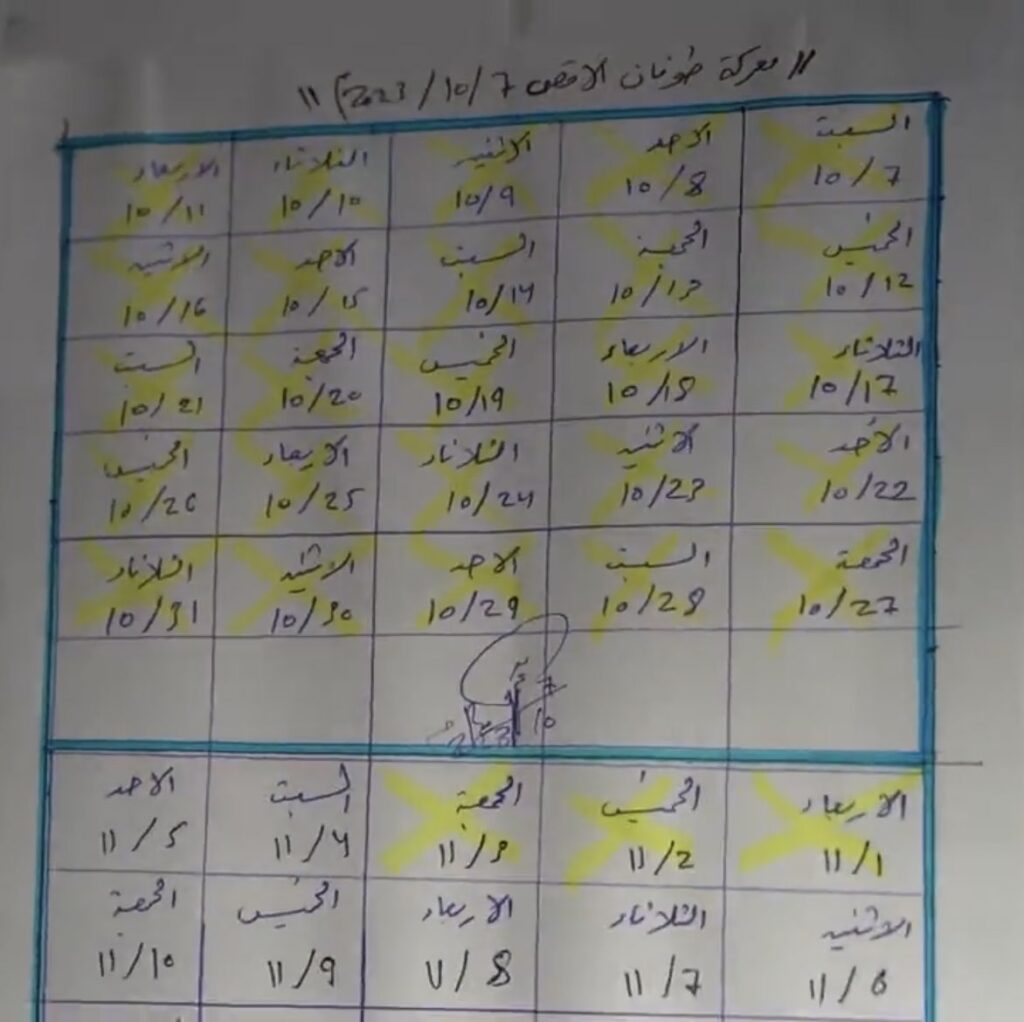 " معركة طوفان الاقصى 2023/10/7 "
السبت الاحد الاثنين الثلاثاء الاربعاء
10/7 10/8 10/9 10/10 10/11
الخميس الجمعة السبت الاحد الاثنين
10/12 10/13 10/14 10/15 10/16
الثلاثاء الاربعاء الخميس الجمعة السبت
10/17 10/18 10/19 10/20 10/21
الأحد الاثنين الثلاثاء الاربعاء الخميس
10/22 10/23 10/24 10/25 10/26
الجمعة السبت الاحد الاثنين الثلاثاء
10/27 10/28 10/29 10/30 10/31
الاربعاء الخميس الجمعة السبت الاحد
11/1 11/2 11/3 11/4 11/5
الاثنين الثلاثاء الاربعاء الخميس الجمعة
11/6 11/7 11/8 11/9 11/10